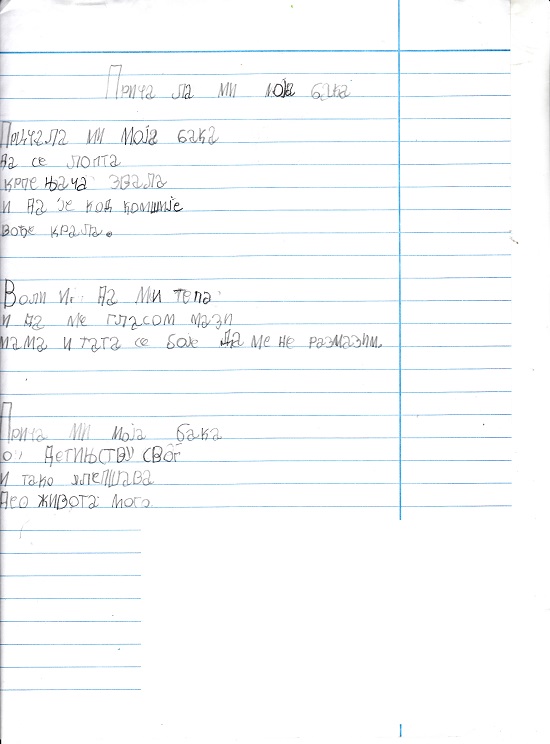 Прича ла ми моја бака
Причала ми моја бака
да се лопта
крпењача звала
и да је код комшије
воће крала.
Воли и да ми тепа
и да ме гласом мази
мама и тата се боје да ме не размази.
Прича ми моја бака
о детињству свог
и тако улепшава
део живота мого